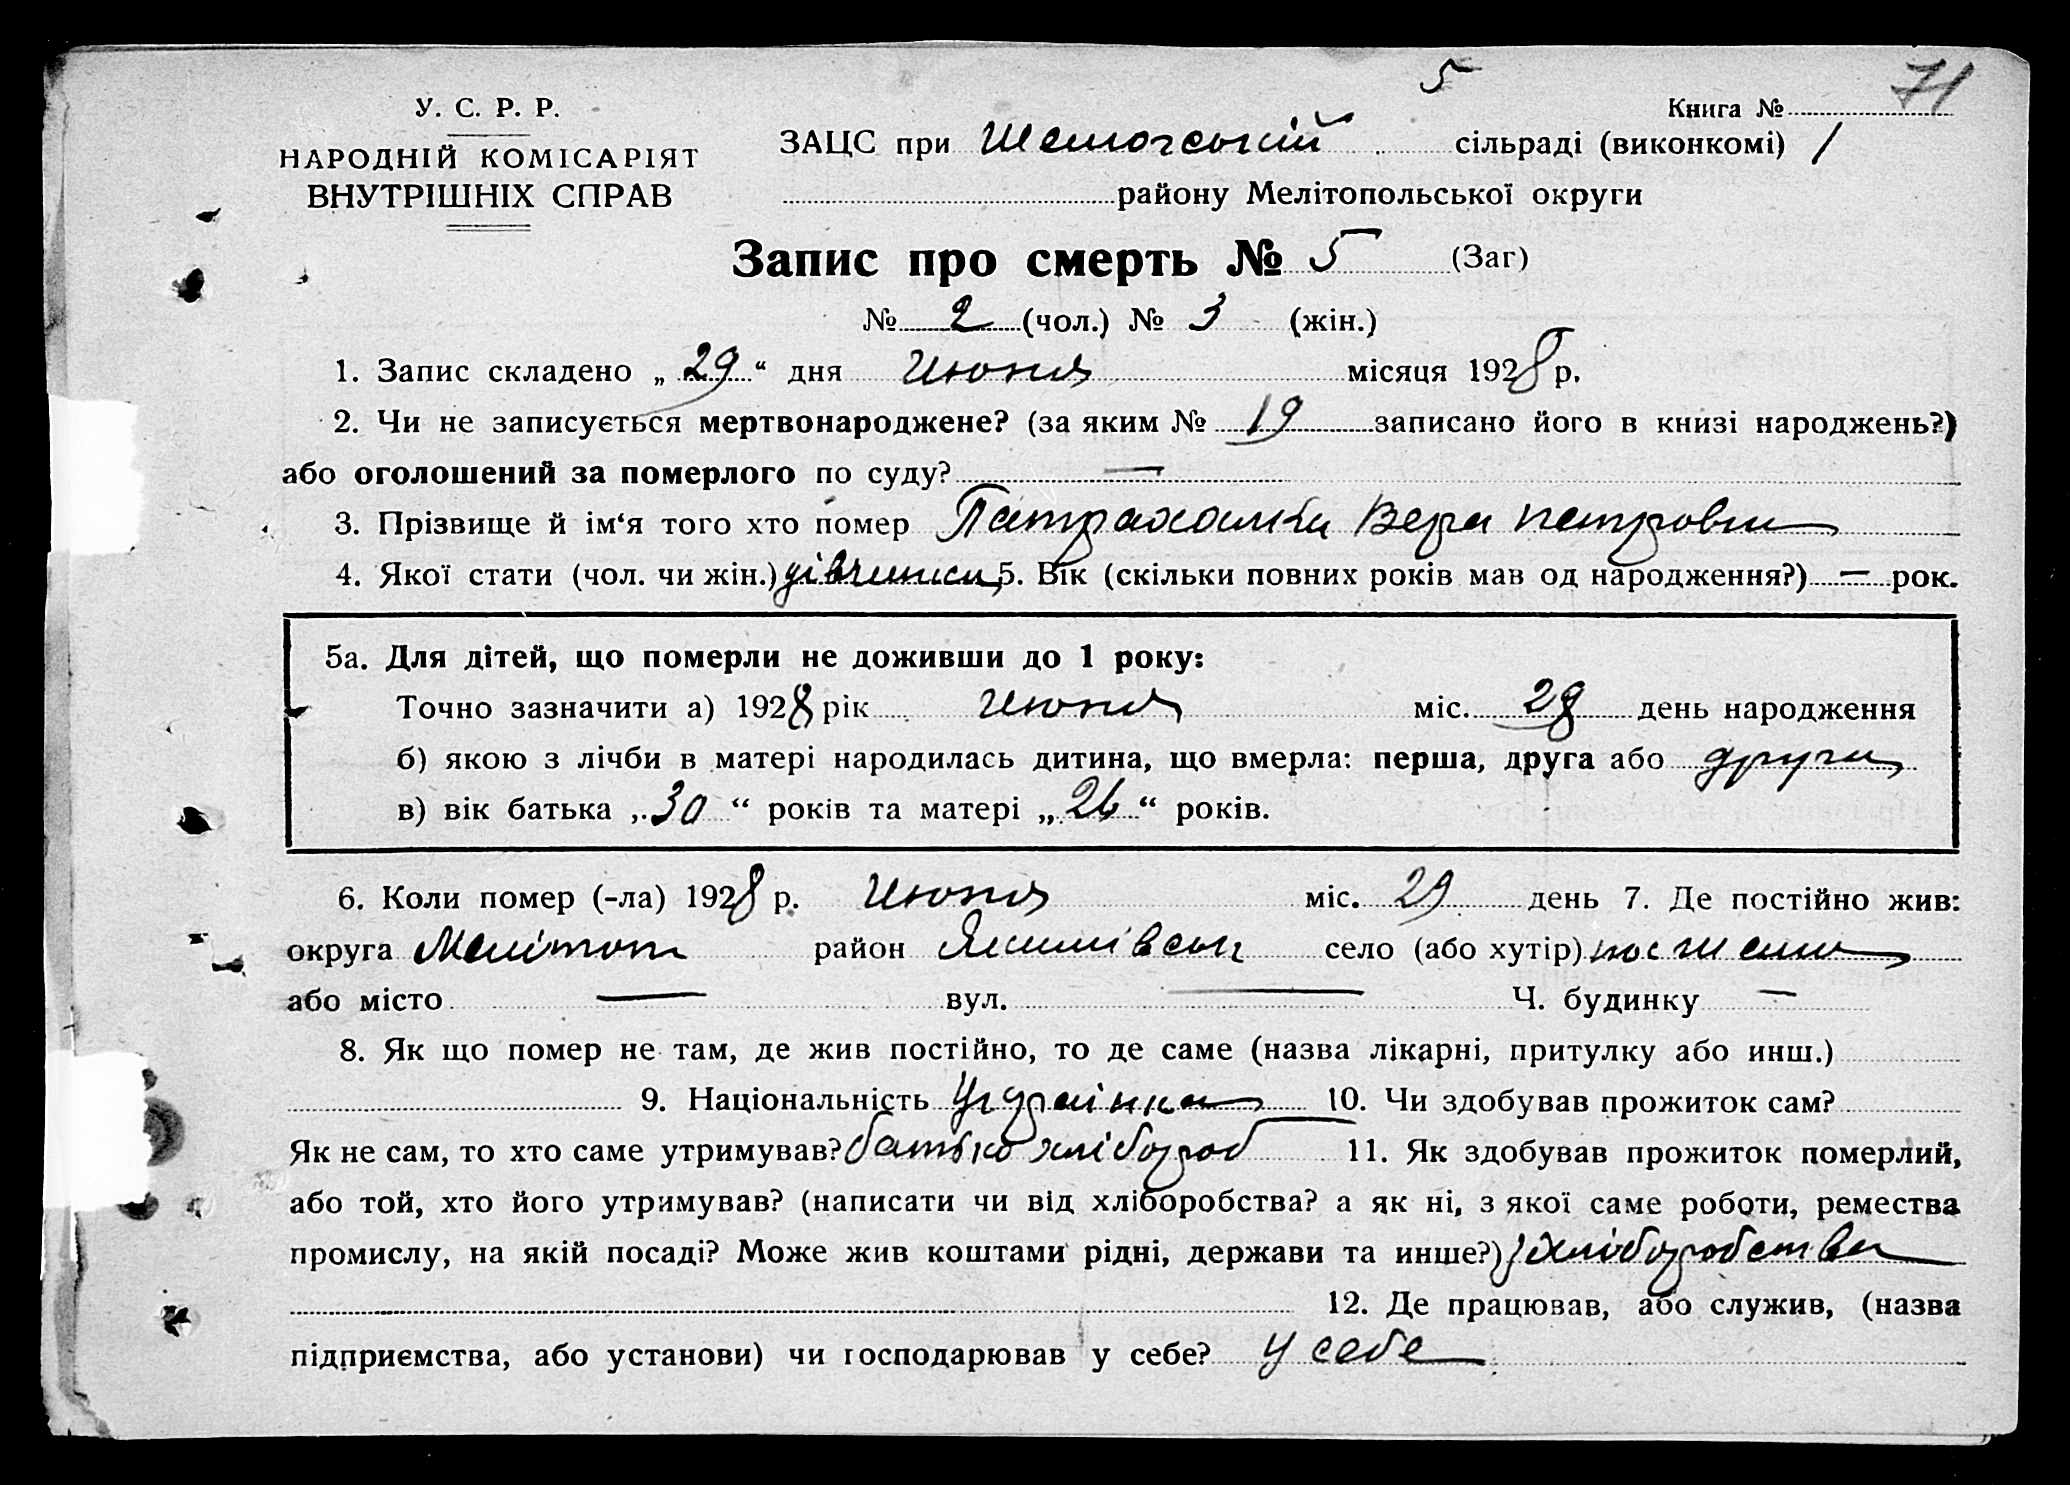 5 71
У. С. Р. Р.
НАРОДНІЙ КОМІСАРІЯТ
ВНУТРІШНІХ СПРАВ
Книга № 1
ЗАЦС при сільраді (виконкомі)
району Мелітопольської округи
Запис про смерть № 5 (Заг)
№ 2 (чол.) № 3 (жін.)
1. Запис складено „ 29 “ дня Июня місяця 1928 р.
2. Чи не записується мертвонароджене? (за яким № 19 записано його в книзі народжень?)
або оголошений за померлого по суду? —
3. Прізвище й ім‘я того хто помер Вера Петровна
4. Якої стати (чол. чи жін.) дівчинка 5. Вік (скільки повних років мав од народження?) — рок.
5а. Для дітей, що померли не доживши до 1 року:
Точно зазначити а) 1928 рік Июня міс. 28 день народження
б) якою з лічби в матері народилась дитина, що вмерла: перша, друга або друга
в) вік батька „ 30 “ років та матері „ 26 “ років.
6. Коли помер (-ла) 1928 р. Июня міс. 29 день 7. Де постійно жив:
округа Мелітоп район село (або хутір)
або місто — вул. — Ч. будинку —
8. Як що помер не там, де жив постійно, то де саме (назва лікарні, притулку або инш.)
9. Національність Українка 10. Чи здобував прожиток сам?
Як не сам, то хто саме утримував? батько хлібороб 11. Як здобував прожиток померлий,
або той, хто його утримував? (написати чи від хліборобства? а як ні, з якої саме роботи, ремества
промислу, на якій посаді? Може жив коштами рідні, держави та инше?) з хліборобства
12. Де працював, або служив, (назва
підприємства, або установи) чи господарював у себе? у себе